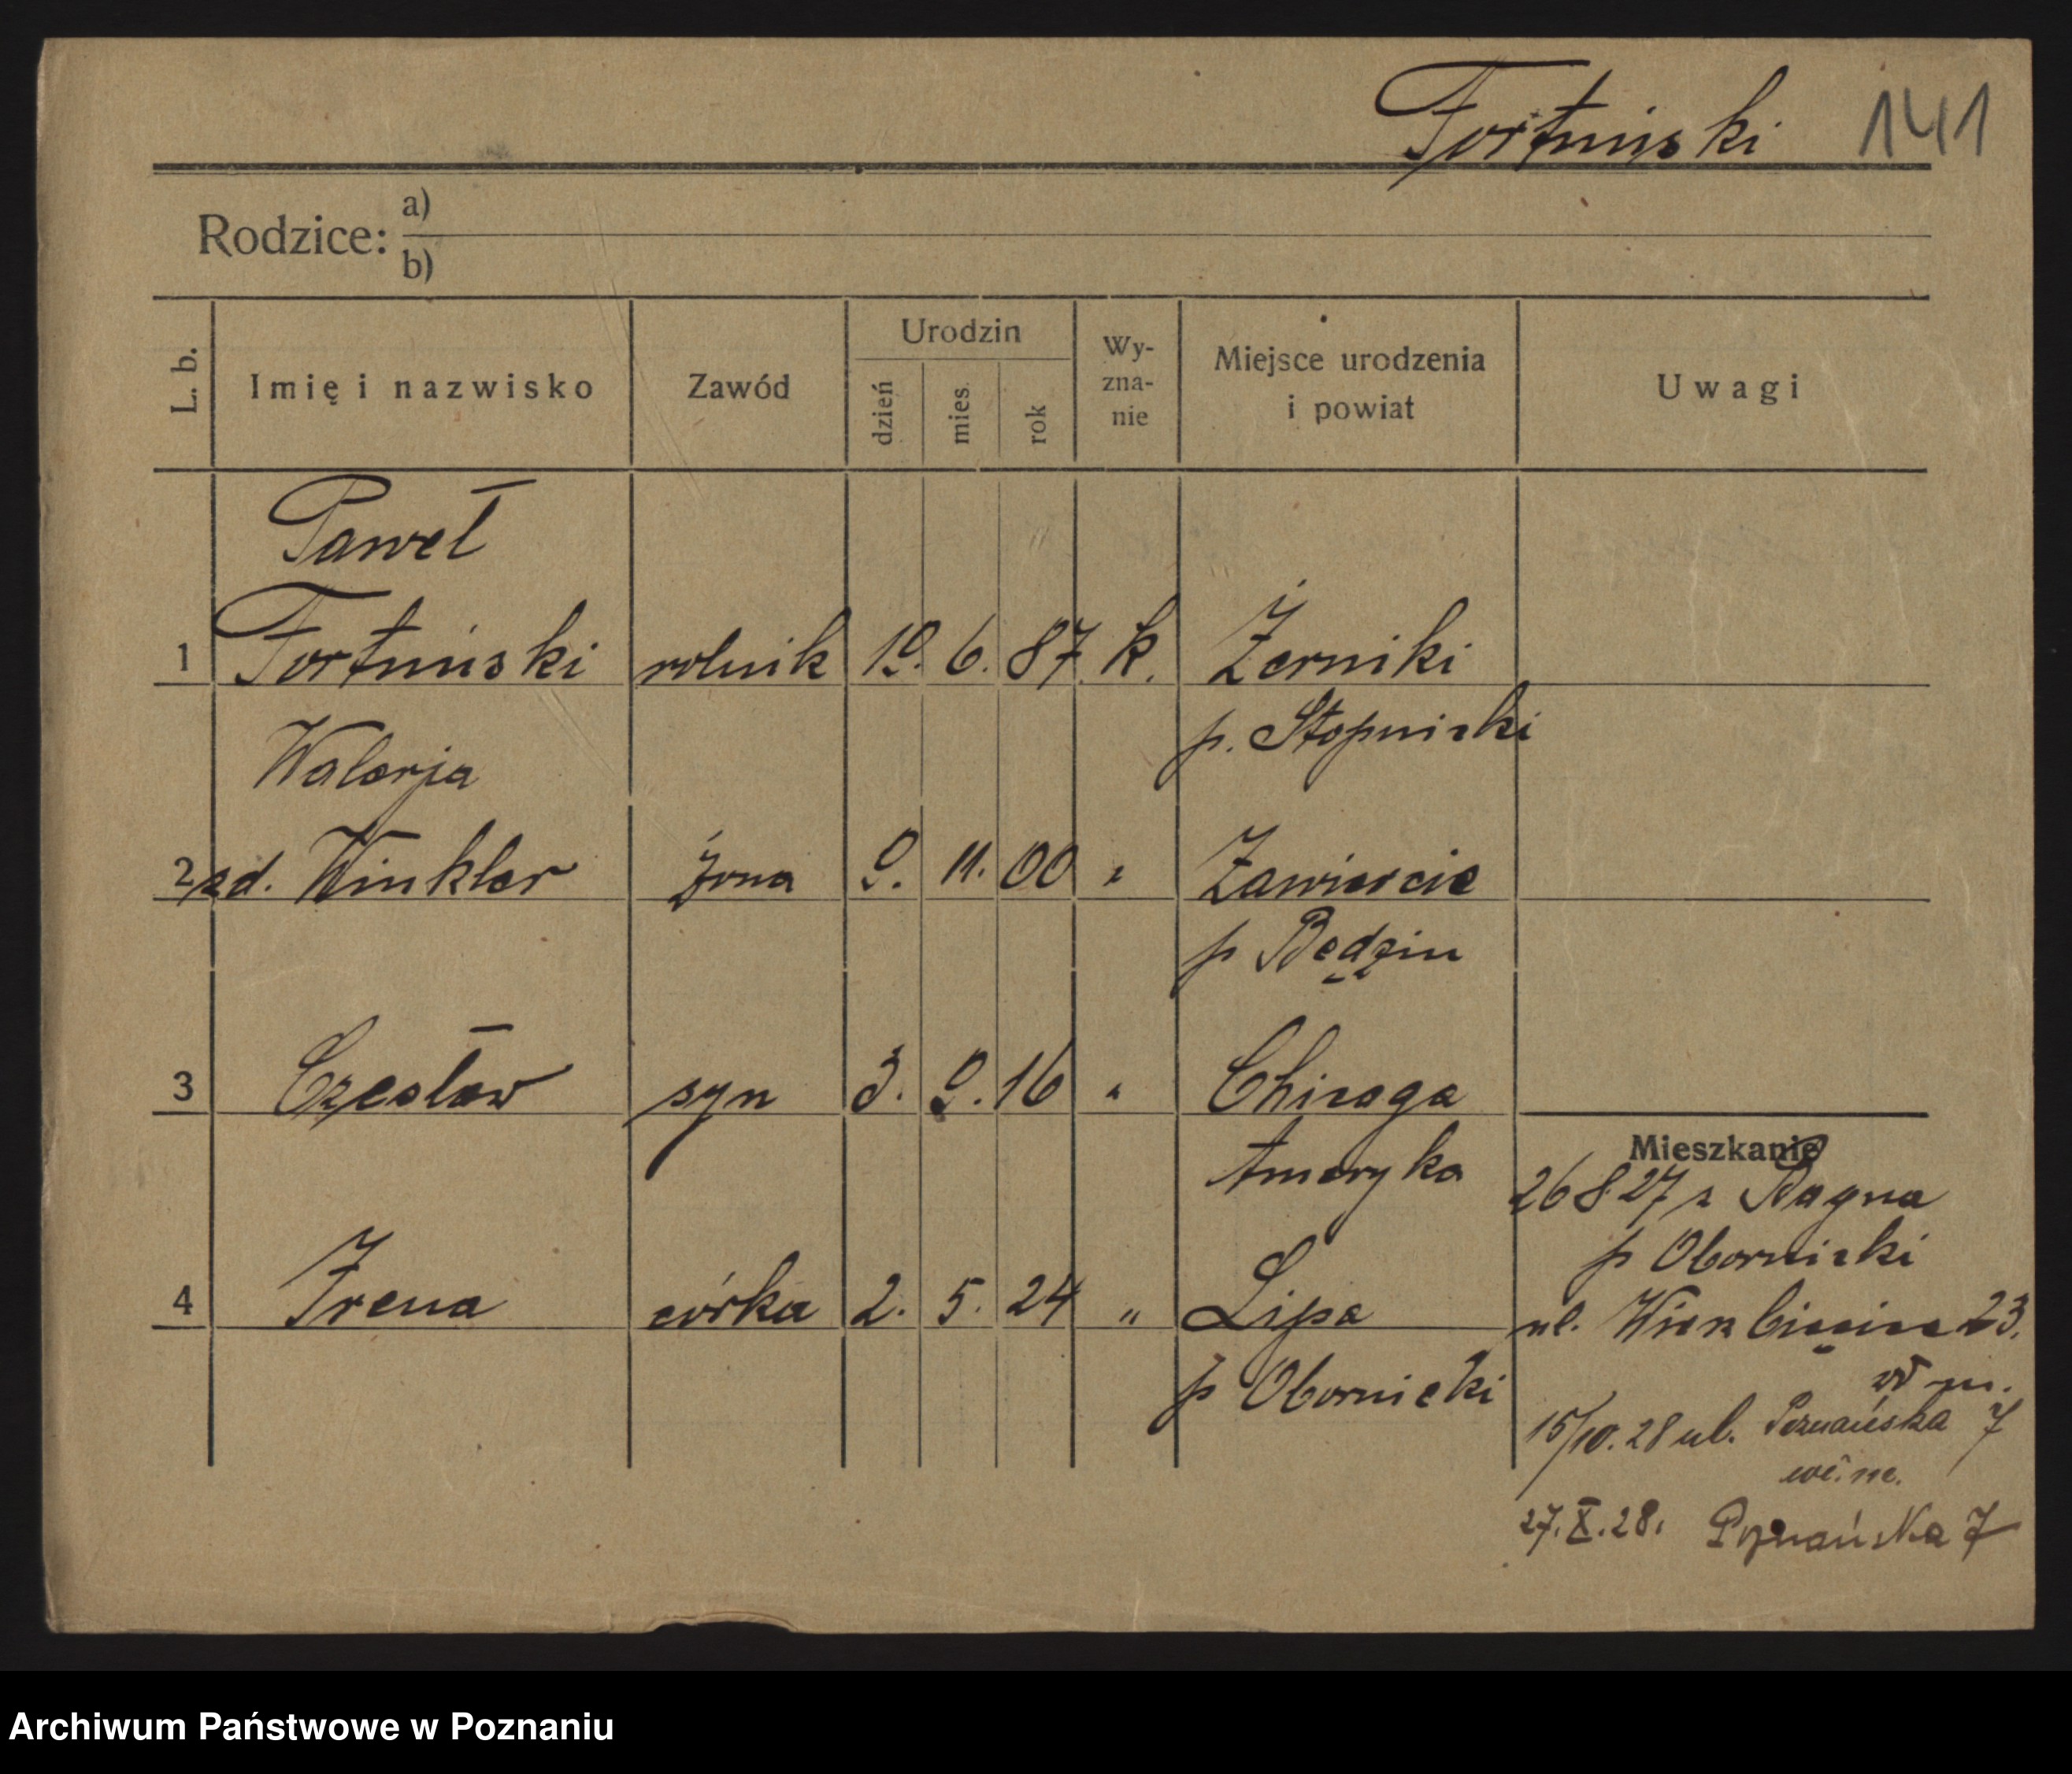 Fortuński 141
Rodzice: a)
b)
L. b. Imię i nazwisko Zawód Urodzin dzień mies. rok Wy-zna-nie Miejsce urodzenia i powiat Uwagi
Paweł
1 Fortuński rolnik 19. 6. 87. k. Żerniki
p. Stopnicki
Walerja
2 zd. Winkler żona 9. 11. 00 " Zawiercie
p Będzin
3 Czesław syn 3. 9. 16 " Chicaga
Ameryka
4 Irena córka 2. 5. 24 " Lipa
p Obornicki
Mieszkanie
26 8.27 z Ragna
p Obornicki
ul. 23.
w m.
15/10. 28 ul. Poznańska 7
w m.
27. X. 28. Poznańska 7
Archiwum Państwowe w Poznaniu